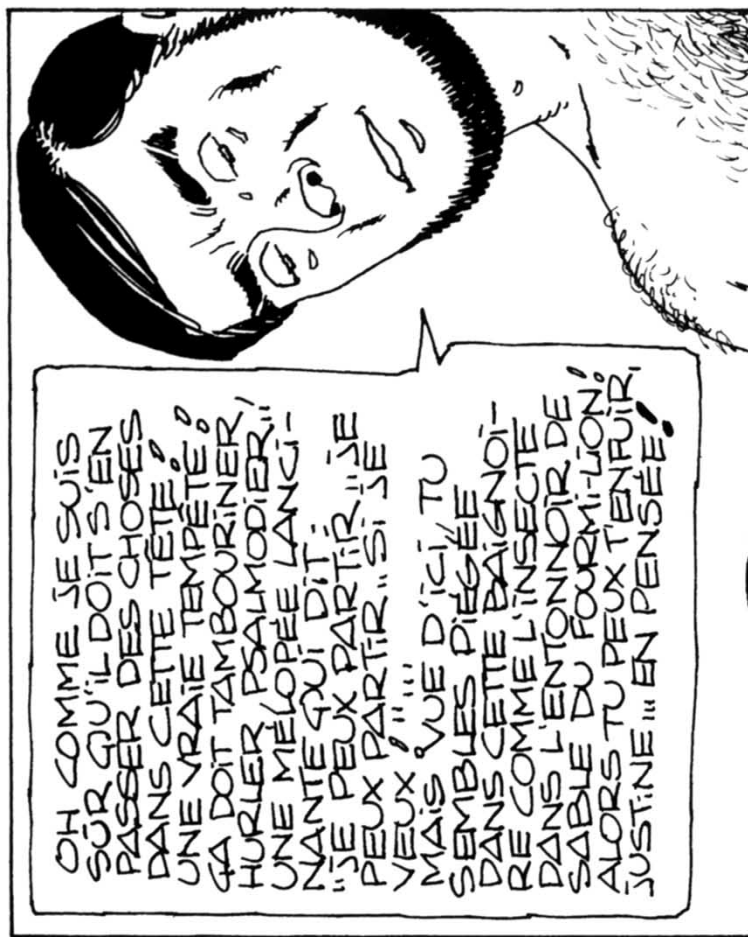 OH COMME JE SUIS
SÛR QU'IL DOIT S'EN
PASSER DES CHOSES
DANS CETTE TÊTE!
UNE VRAIE TEMPÊTE!
ÇA DOIT TAMBOURINER,
HURLER, PSALMODIER...
UNE MÉLOPÉE LANCI-
NANTE QUI DIT:
"JE PEUX PARTIR... JE
PEUX PARTIR... SI JE
VEUX!"...
MAIS VUE D'ICI, TU
SEMBLES PIÉGÉE
DANS CETTE BAIGNOI-
RE COMME L'INSECTE
DANS L'ENTONNOIR DE
SABLE DU FOURMI-LION!
ALORS TU PEUX T'ENFUIR,
JUSTINE... EN PENSÉE!